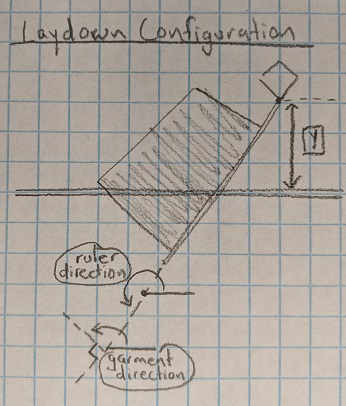 Laydown Configuration
Y
ruler
direction
garment
direction